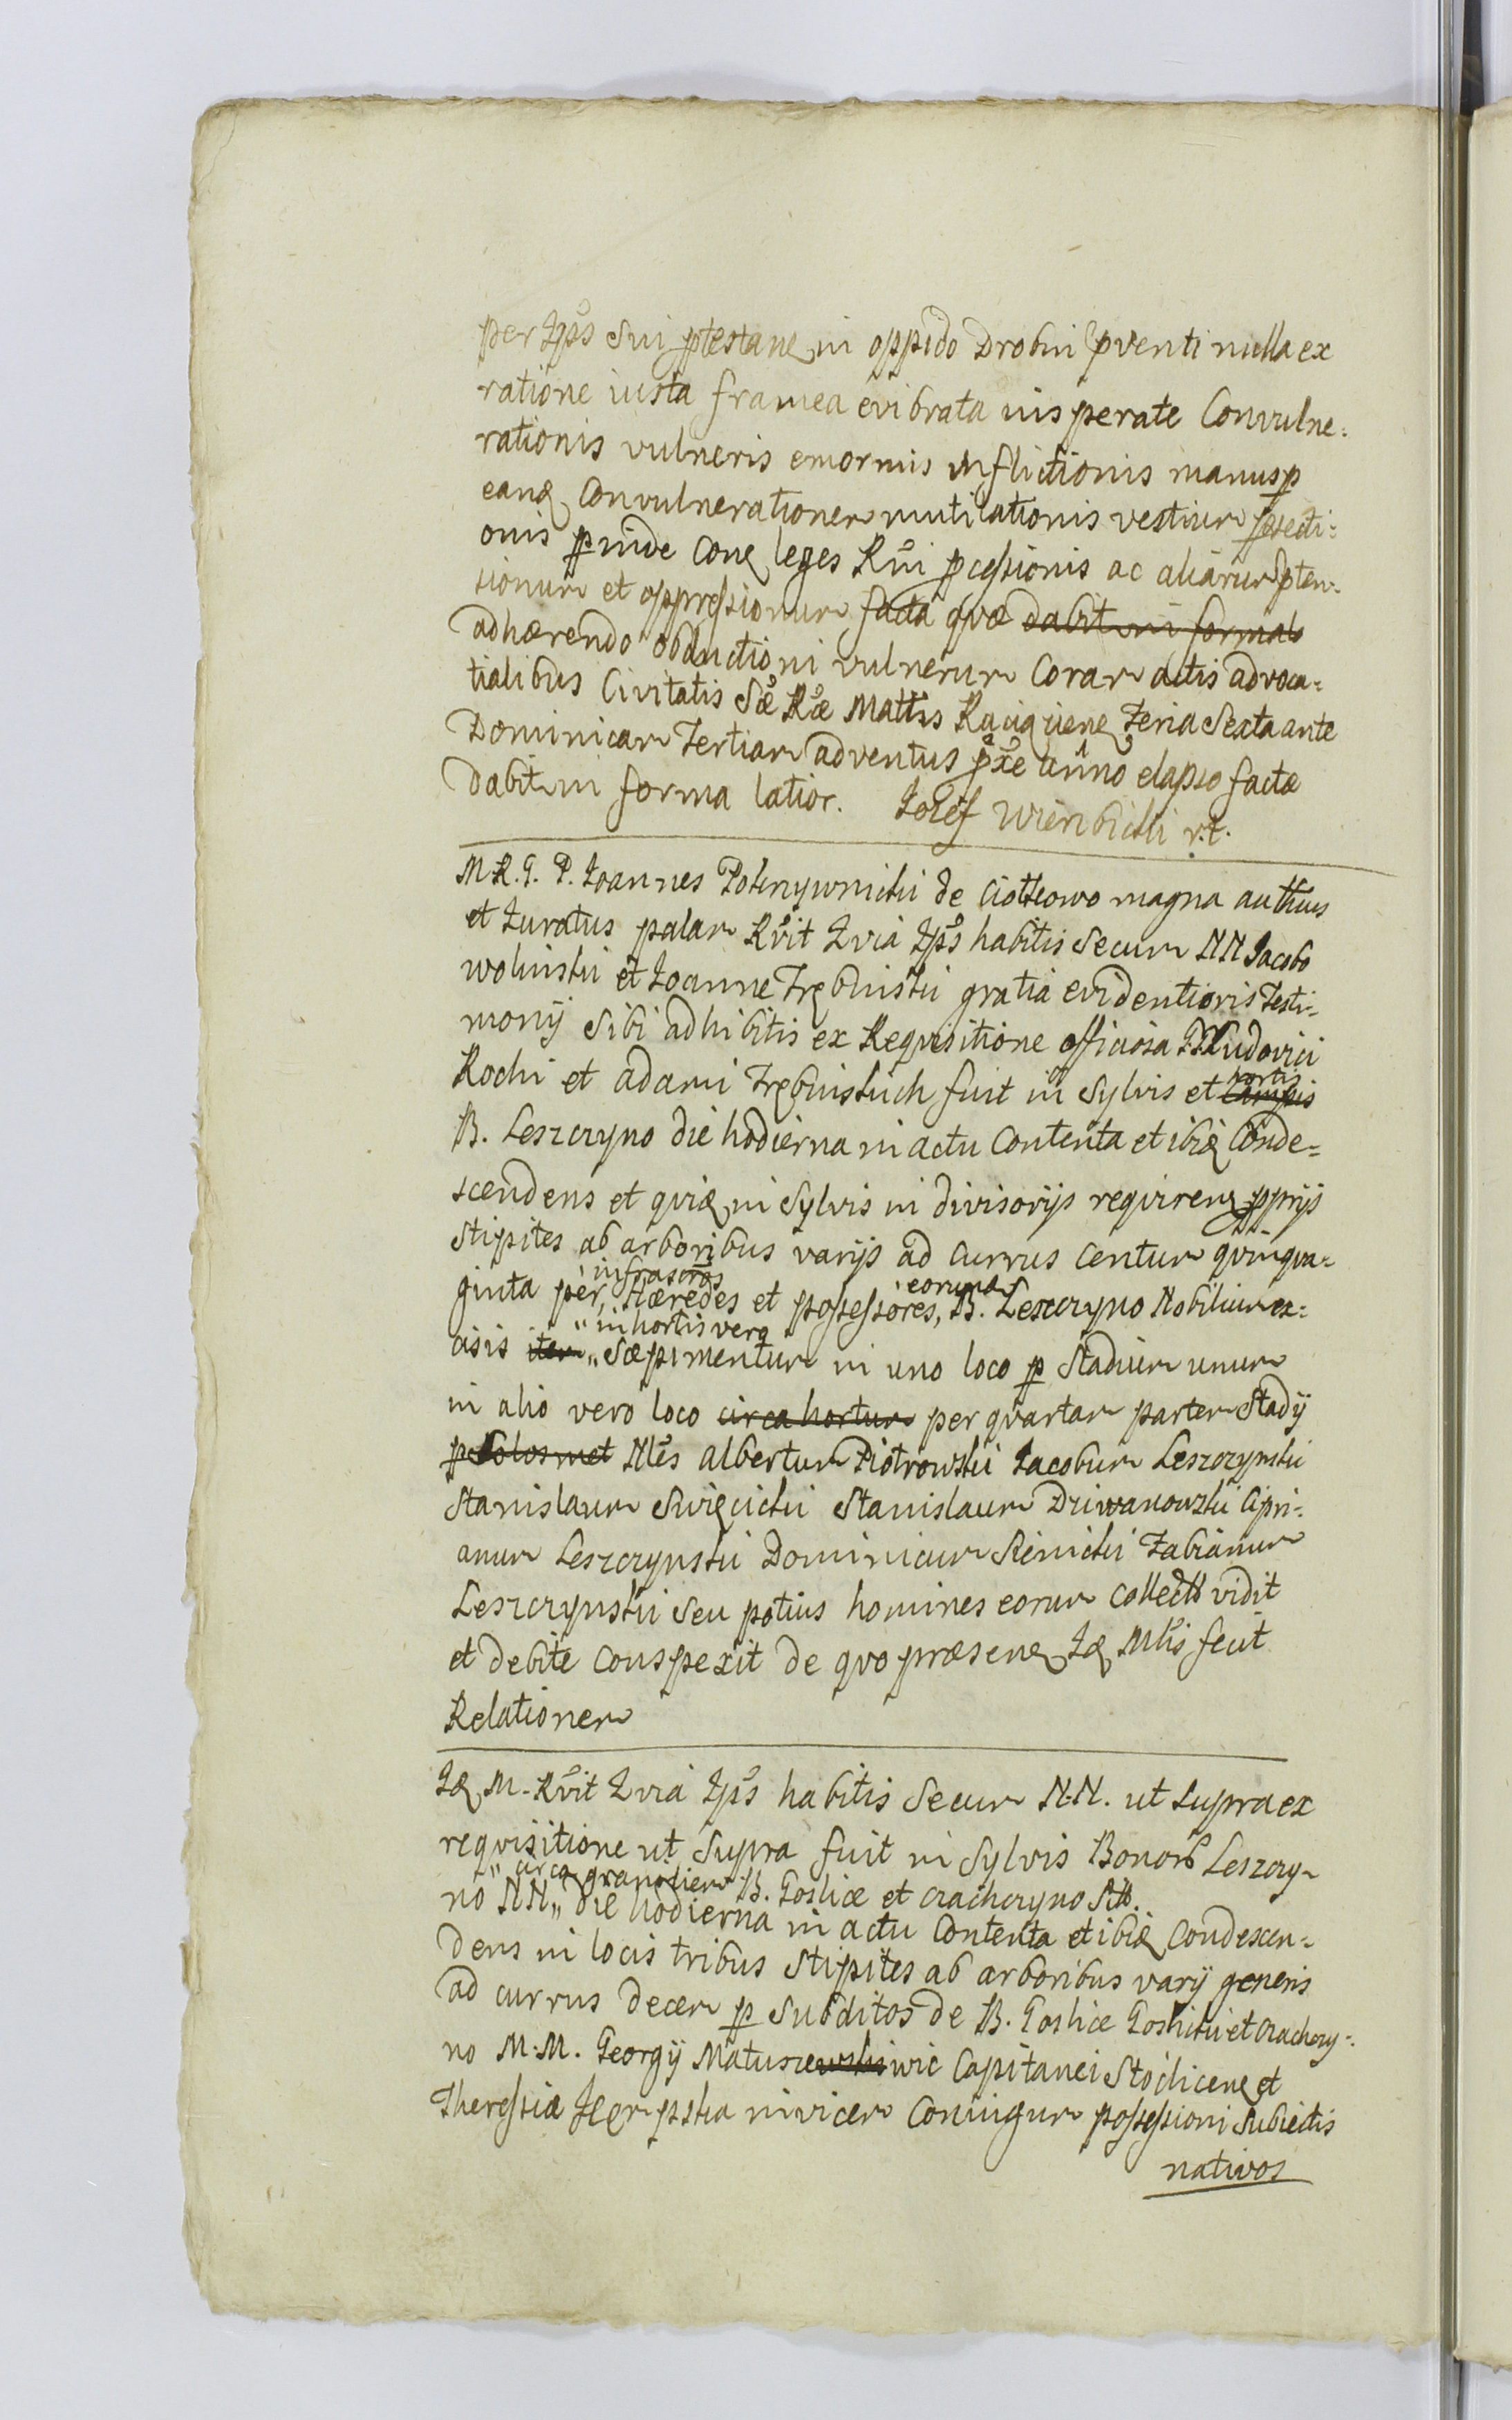 per Ipṡ sui ptestane in oppido Drobin pventi nulla ex
ratione iusta framea evibrata insperate Convulne=
rationis vulneris enormis inflictionis manus p
eanq Convulneratione mutilationis vestium secti=
onis pinde Conq leges Rni pcessionis ac aliarum pten-
sionum et oppressionum facta quæ dabit in forma lo
adhærendo obductioni vulnerum Coram actis advoca=
tialibus Civitatis Sæ Ræ Mattis Raciąziene Feria Sexta ante
Dominicam Tertiam adventus pxe anno elapso factæ
Dabit in forma latior. Iozef r.t.
M. R. G. P. Ioannes de Ciółkowo magna authus
et Iuratus palam Rvit Qvia Ipṡ habitis Secum NN Iacobo
Wolinski et Ioanne Trębinski gratia evidentioris Testi-
monij Sibi adhibitis ex Reqvisitione officiosa Ludovici
Rochi et Adami Trębinskich fuit in Sylvis et Campis
hortis
B. Leszczyno die hodierna in actu Contenta et ibiq Conde=
scendens et qviq in Sylvis in divisorijs reqvirenq pprijs
Stipites ab arboribus varijs ad currus Centum qvinqva=
infrascros eorumd
ginta per, Hæredes et possessores, B. Leszczyno Nobilium ex=
" in hortis vero
cisis item " Sæpimentum in uno loco p Stadium unum
in alio vero loco circa hortum per qvartam partem Stadij
p Solosmet Nles Albertum Piotrowski Iacobum Leszczynski
Stanislaum Swięcicki Stanislaum Dziwanowski Cipri=
anum Leszczynski Dominicum Sienicki Fabianum
Leszczynski Seu potius homines eorum collecto vidit
et debite conspexit de qvo præsenq Iq Mlis fecit
Relationem
Iq M. Rvit Qvia Ipṡ habitis Secum N.N. ut Supra ex
reqvisitione ut Supra fuit in Sylvis Bonor Leszczy-
" circa granitiem B. Goslice et Crachczyno Sitto.
no NN " die hodierna in actu Contenta et ibiq Condescen=
dens in locis tribus Stipites ab arboribus varij generis
ad currus decem p Subditos de B. Goslice Goslicki et Crachczy=
no M. M. Georgij Matuszewskiwic Capitanei Stoclicenq et
Theressiæ invicem Coniugum possessioni Subiectis
nativos